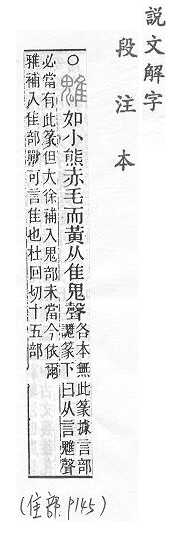 說文解字
段注本
○如小熊赤毛而黃从隹鬼聲
各本無此篆據言部
篆下曰从言魋聲
必當有此篆但大徐補入鬼部未當今依爾
雅補入隹部獸可言隹也杜回切十五部
(隹部 P145)